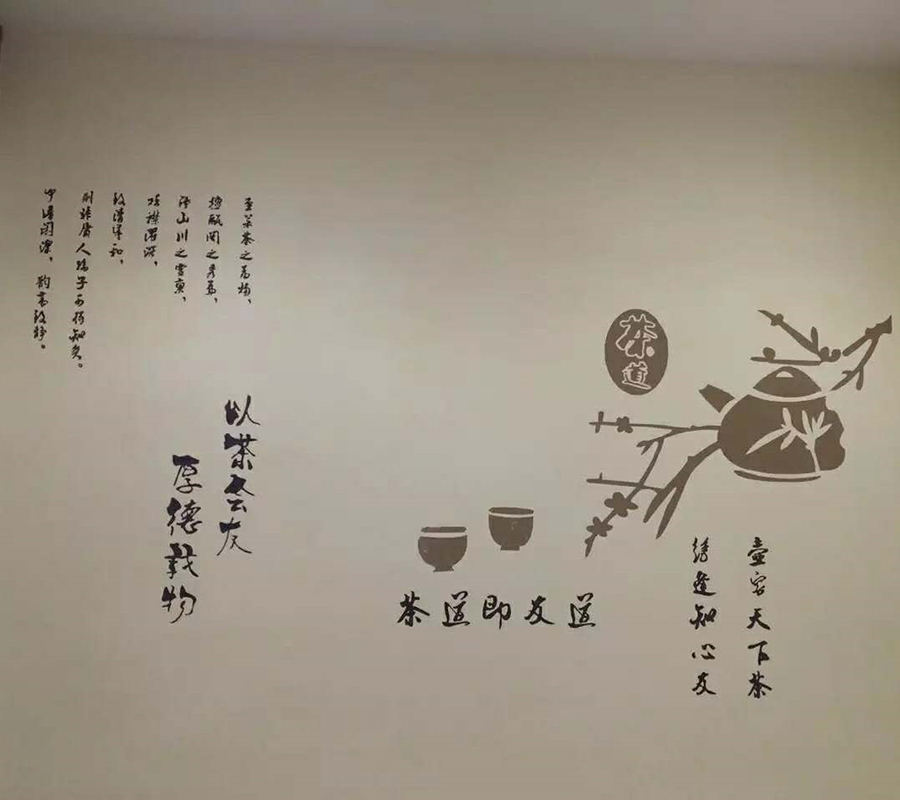 至若茶之为物，
擅瓯闽之秀气，
钟山川之灵禀，
祛襟涤滞，
致清导和，
则非庸人孺子可得知矣。
中澹闲洁，韵高致静。
以茶会友
厚德载物
茶道
茶道即友道
壶容天下茶
逢知心友